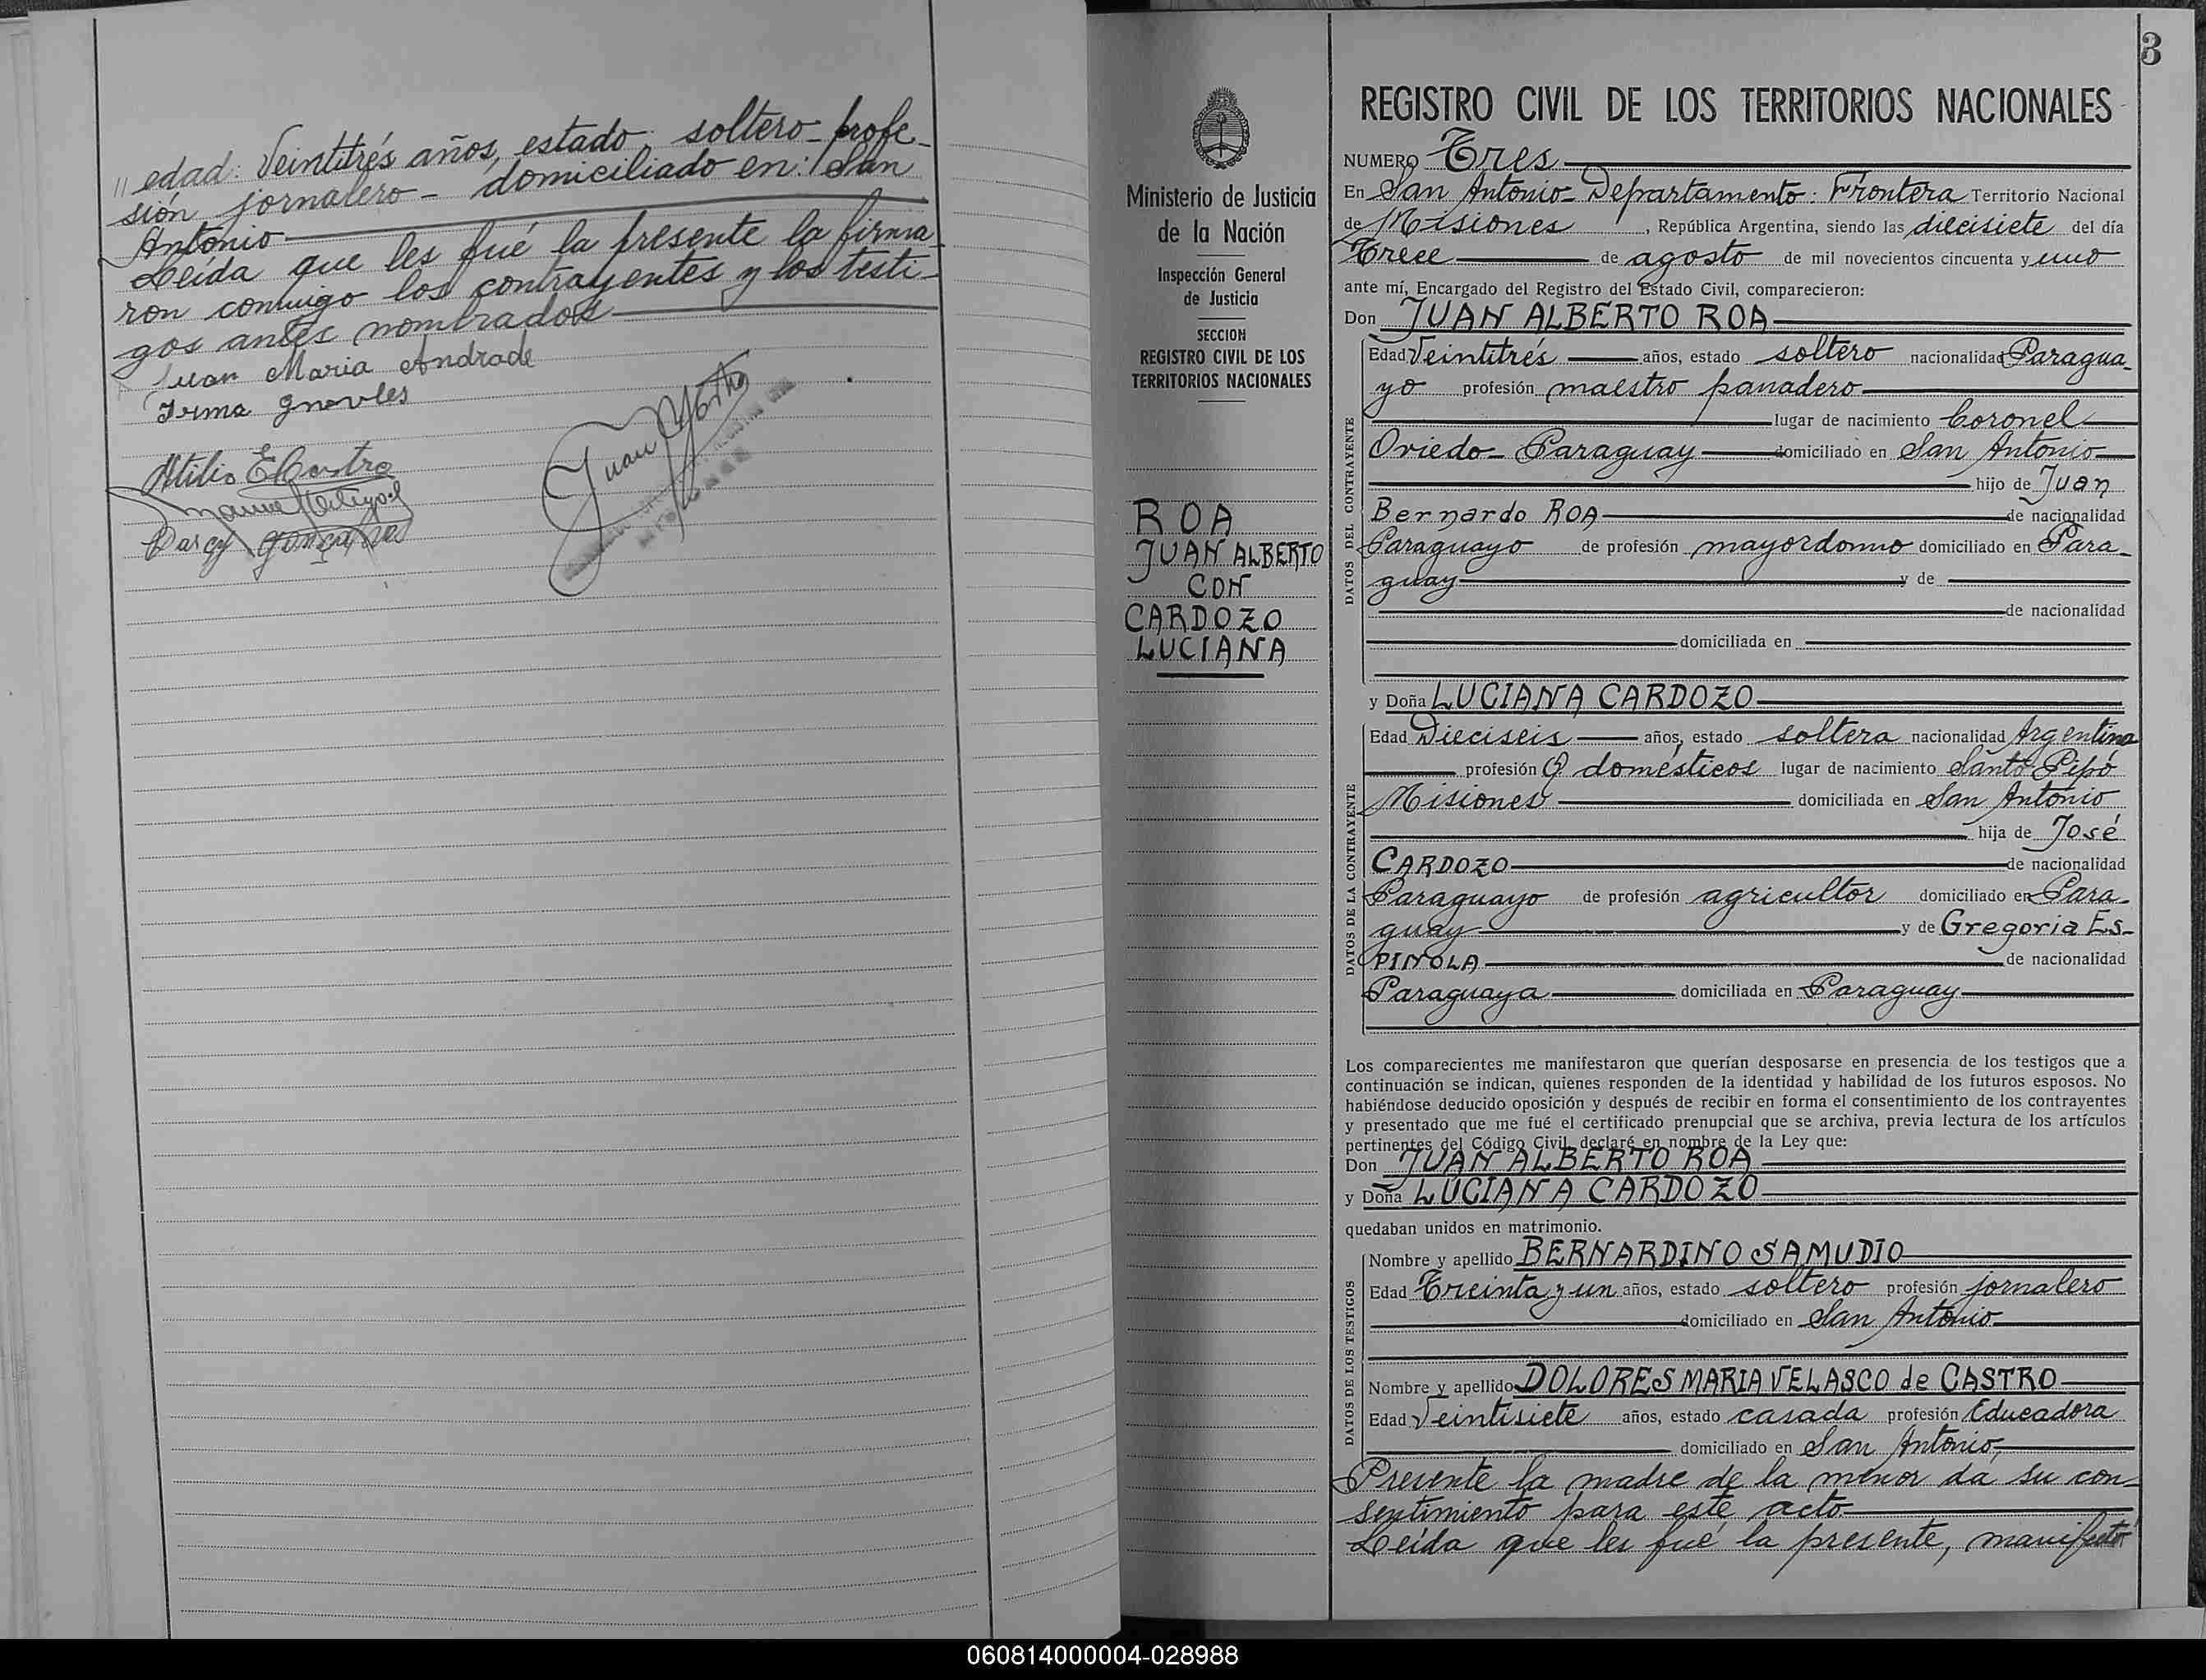 " edad: Veintitrés años, estado soltero - profe-
sión jornalero - domiciliado en: San
Antonio
Leída que les fué la presente la firma-
ron conmigo los contrayentes y los testi-
gos antes nombrados
Juan Maria Andrade
Irma
Atilio E Castro
Darcy
Juan
3
Ministerio de Justicia
de la Nación
Inspección General
de Justicia
SECCION
REGISTRO CIVIL DE LOS
TERRITORIOS NACIONALES
ROA
JUAN ALBERTO
CON
CARDOZO
LUCIANA
REGISTRO CIVIL DE LOS TERRITORIOS NACIONALES
NUMERO Tres
En San Antonio - Departamento: Frontera Territorio Nacional
de Misiones, República Argentina, siendo las diecisiete del día
Trece de agosto de mil novecientos cincuenta y uno
ante mí, Encargado del Registro del Estado Civil, comparecieron:
Don JUAN ALBERTO ROA
DATOS DEL CONTRAYENTE
Edad Veintitrés años, estado soltero nacionalidad Paragua-
yo profesión maestro panadero
lugar de nacimiento Coronel
Oviedo - Paraguay domiciliado en San Antonio
hijo de Juan
Bernardo ROA de nacionalidad
Paraguayo de profesión mayordomo domiciliado en Para-
guay y de
de nacionalidad
domiciliada en
y Doña LUCIANA CARDOZO
DATOS DE LA CONTRAYENTE
Edad Dieciseis años, estado soltera nacionalidad Argentina
profesión Q domésticos lugar de nacimiento Santo Pipó
Misiones domiciliada en San Antonio
hija de José
CARDOZO de nacionalidad
Paraguayo de profesión agricultor domiciliado en Para-
guay y de Gregoria Es-
PINOLA de nacionalidad
Paraguaya domiciliada en Paraguay
Los comparecientes me manifestaron que querían desposarse en presencia de los testigos que a
continuación se indican, quienes responden de la identidad y habilidad de los futuros esposos. No
habiéndose deducido oposición y después de recibir en forma el consentimiento de los contrayentes
y presentado que me fué el certificado prenupcial que se archiva, previa lectura de los artículos
pertinentes del Código Civil, declaré en nombre de la Ley que:
Don JUAN ALBERTO ROA
y Doña LUCIANA CARDOZO
quedaban unidos en matrimonio.
DATOS DE LOS TESTIGOS
Nombre y apellido BERNARDINO SAMUDIO
Edad Treinta y un años, estado soltero profesión jornalero
domiciliado en San Antonio
Nombre y apellido DOLORES MARIA VELASCO de CASTRO
Edad Veintisiete años, estado casada profesión Educadora
domiciliado en San Antonio
Presente la madre de la menor da su con-
sentimiento para este acto
Leída que les fué la presente, manifestó
060814000004-028988